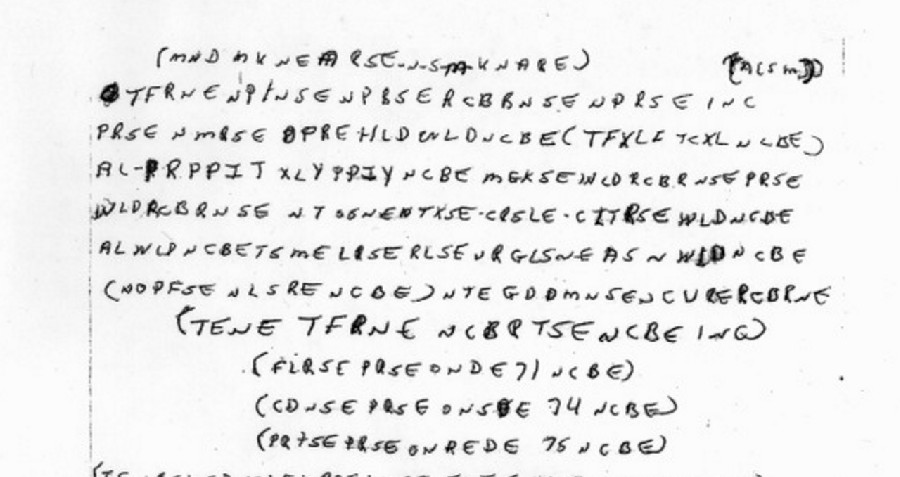 (MND MKNEARSE-N-S-M-KNARE) (ACSM)
TFRNENPINSENPBSERCBBNSENPRSEINC
PRSENMRSEOPREHLDWLDNCBE(TFXLFTCXLNCBE)
AL-PRPPIT XLYPPIYNCBE MGKSEWLDRCBRNSEPRSE
WLDRCBRNSE NTSGNENTXSE-CRSLE-CITRSE WLDNCBE
ALWLPNCBETSMELRSERLSEURGLSNEASNWLDNCBE
(NOPFSE NLSRENCBE)NTEGDDMNSENCURERCBRNE
(TENE TFRNE NCBRTSENCBEINC)
(FLRSE PRSEONDE71NCBE)
(CDNSE PRSEONSDE 74 NCBE)
(PRTSEPRSEONREDE 75 NCBE)